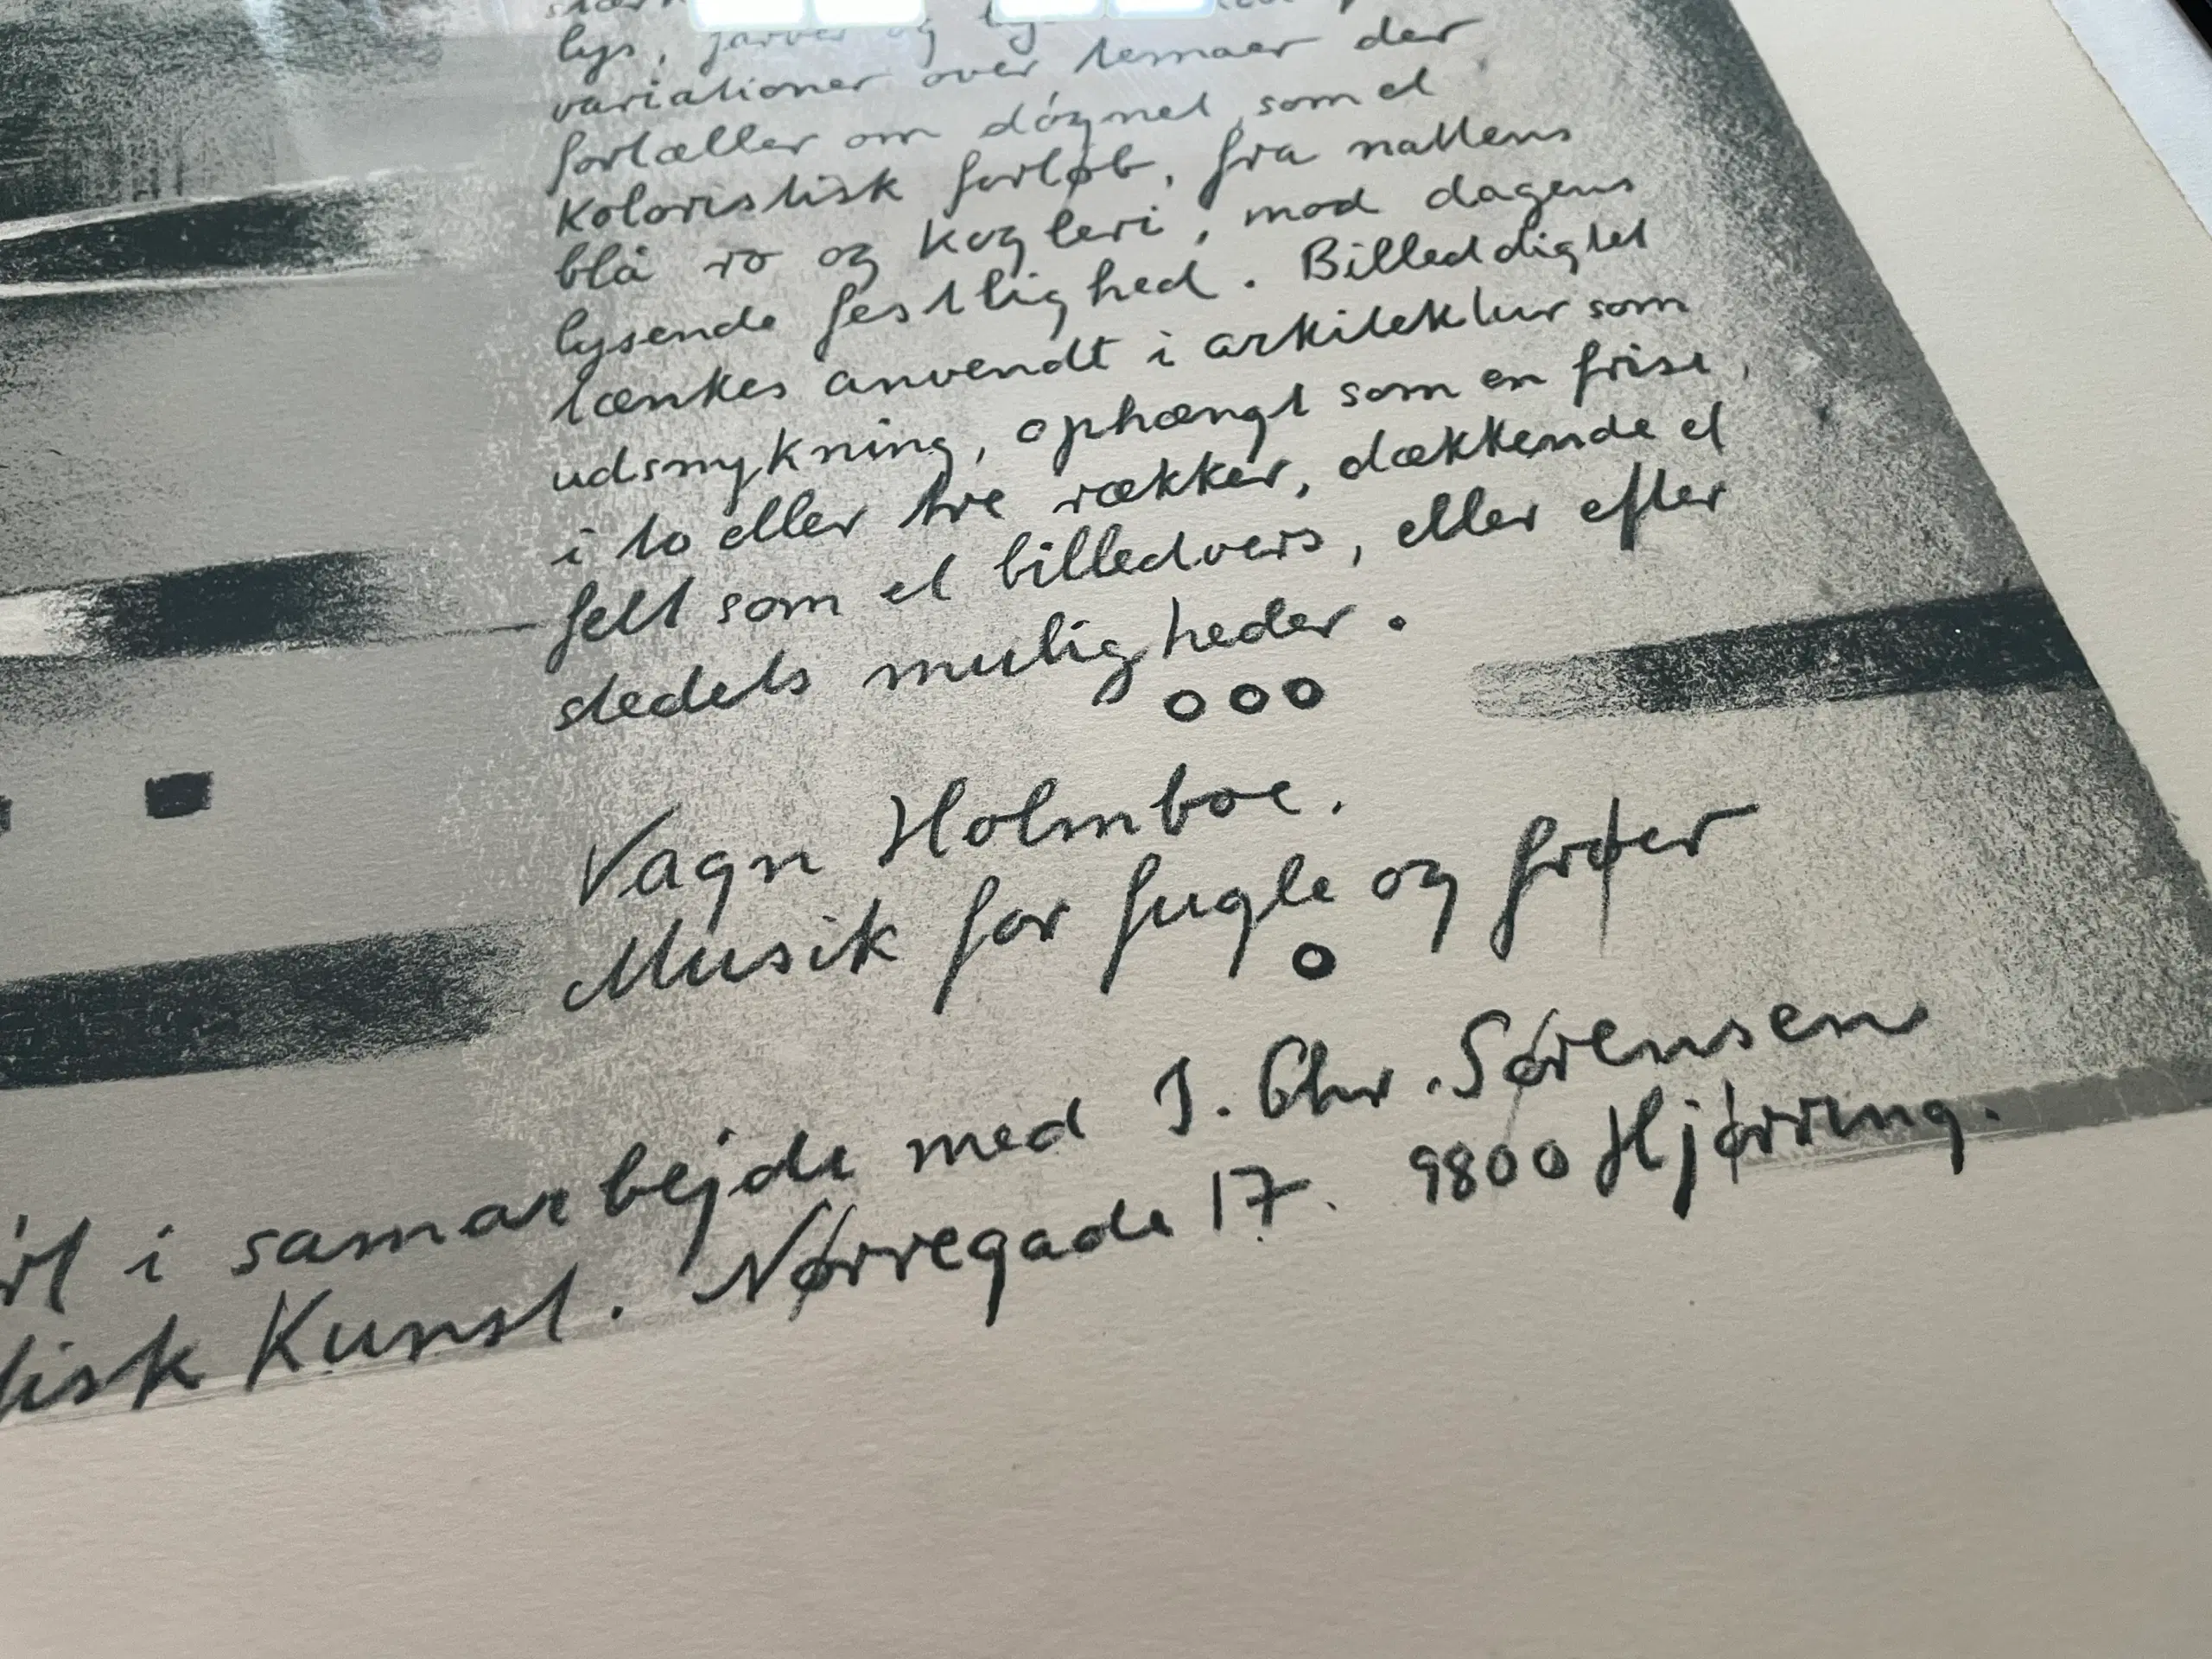 lys, farver og
variationer over temaer der
fortæller om døgnet, som et
koloristisk forløb, fra nattens
blå ro og kogleri, mod dagens
lysende festlighed. Billeddigtet
tænkes anvendt i arkitektur som
udsmykning, ophængt som en frise,
i to eller tre rækker, dækkende et
felt som et billedvers, eller efter
stedets muligheder.
ooo
Vagn Holmboe.
Musik for fugle og frøer
o
i samarbejde med J. Chr. Sørensen
Kunst. Nørregade 17. 9800 Hjørring.